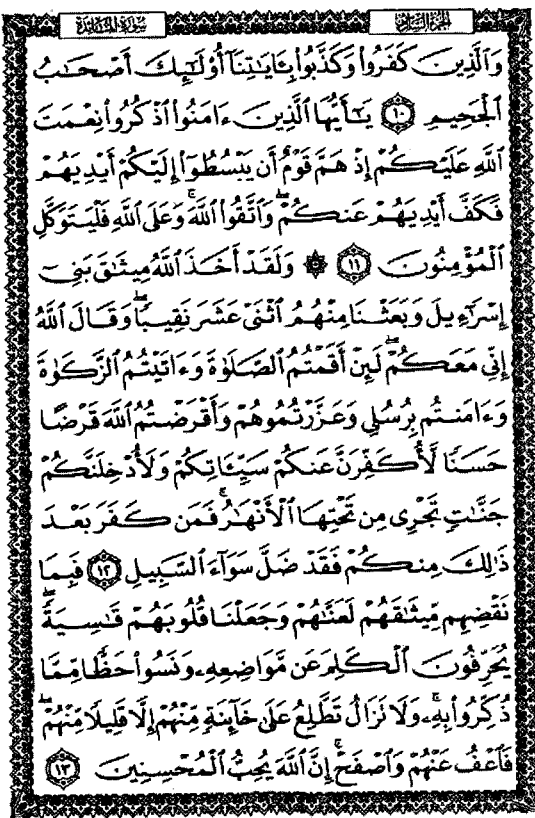 سورة المائدة
الجزء السادس
وَالَّذِينَ كَفَرُوا وَكَذَّبُوا بِـَٔايَـٰتِنَآ أُوْلَـٰٓئِكَ أَصْحَـٰبُ
ٱلْجَحِيمِ ١٠ يَـٰٓأَيُّهَا ٱلَّذِينَ ءَامَنُوا ٱذْكُرُوا نِعْمَتَ
ٱللَّهِ عَلَيْكُمْ إِذْ هَمَّ قَوْمٌ أَن يَبْسُطُوٓا إِلَيْكُمْ أَيْدِيَهُمْ
فَكَفَّ أَيْدِيَهُمْ عَنكُمْ ۖ وَٱتَّقُوا ٱللَّهَ ۚ وَعَلَى ٱللَّهِ فَلْيَتَوَكَّلِ
ٱلْمُؤْمِنُونَ ١١ ۞ وَلَقَدْ أَخَذَ ٱللَّهُ مِيثَـٰقَ بَنِىٓ
إِسْرَٰٓءِيلَ وَبَعَثْنَا مِنْهُمُ ٱثْنَىْ عَشَرَ نَقِيبًا ۖ وَقَالَ ٱللَّهُ
إِنِّى مَعَكُمْ ۖ لَئِنْ أَقَمْتُمُ ٱلصَّلَوٰةَ وَءَاتَيْتُمُ ٱلزَّكَوٰةَ
وَءَامَنتُم بِرُسُلِى وَعَزَّرْتُمُوهُمْ وَأَقْرَضْتُمُ ٱللَّهَ قَرْضًا
حَسَنًا لَّأُكَفِّرَنَّ عَنكُمْ سَيِّـَٔاتِكُمْ وَلَأُدْخِلَنَّكُمْ
جَنَّـٰتٍ تَجْرِى مِن تَحْتِهَا ٱلْأَنْهَـٰرُ ۚ فَمَن كَفَرَ بَعْدَ
ذَٰلِكَ مِنكُمْ فَقَدْ ضَلَّ سَوَآءَ ٱلسَّبِيلِ ١٢ فَبِمَا
نَقْضِهِم مِّيثَـٰقَهُمْ لَعَنَّـٰهُمْ وَجَعَلْنَا قُلُوبَهُمْ قَـٰسِيَةً ۖ
يُحَرِّفُونَ ٱلْكَلِمَ عَن مَّوَاضِعِهِۦ ۙ وَنَسُوا حَظًّا مِّمَّا
ذُكِّرُوا بِهِۦ ۚ وَلَا تَزَالُ تَطَّلِعُ عَلَىٰ خَآئِنَةٍ مِّنْهُمْ إِلَّا قَلِيلًا مِّنْهُمْ ۖ
فَٱعْفُ عَنْهُمْ وَٱصْفَحْ ۚ إِنَّ ٱللَّهَ يُحِبُّ ٱلْمُحْسِنِينَ ١٣